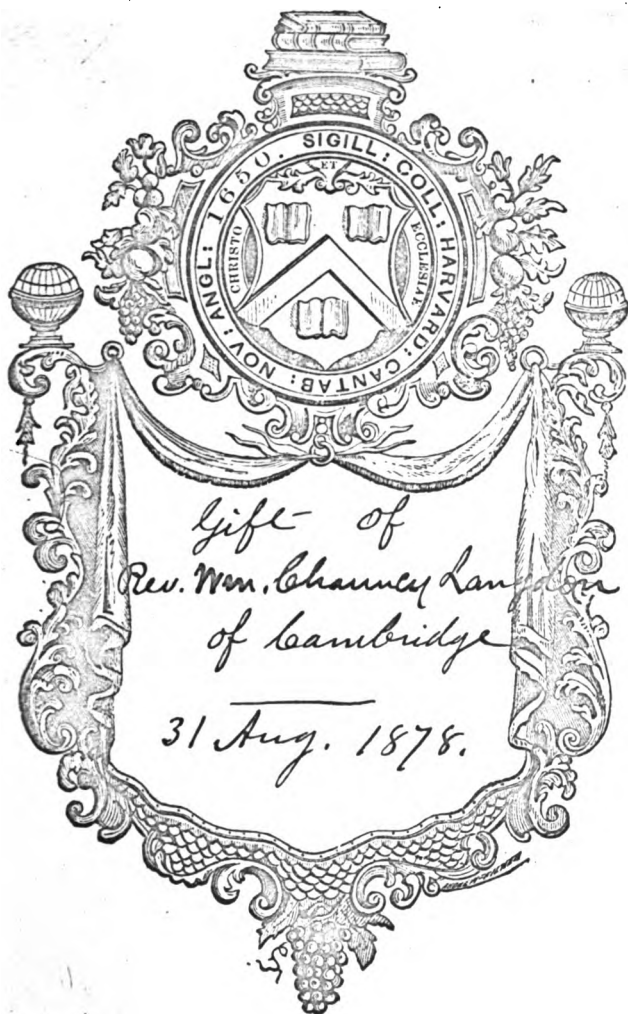 SIGILL: COLL: HARVARD: CANTAB: NOV: ANGL: 1650.
ET
CHRISTO
ECCLESIAE
Gift of
Rev. Wm. Chauncy Langdon
of Cambridge
31 Aug. 1878.